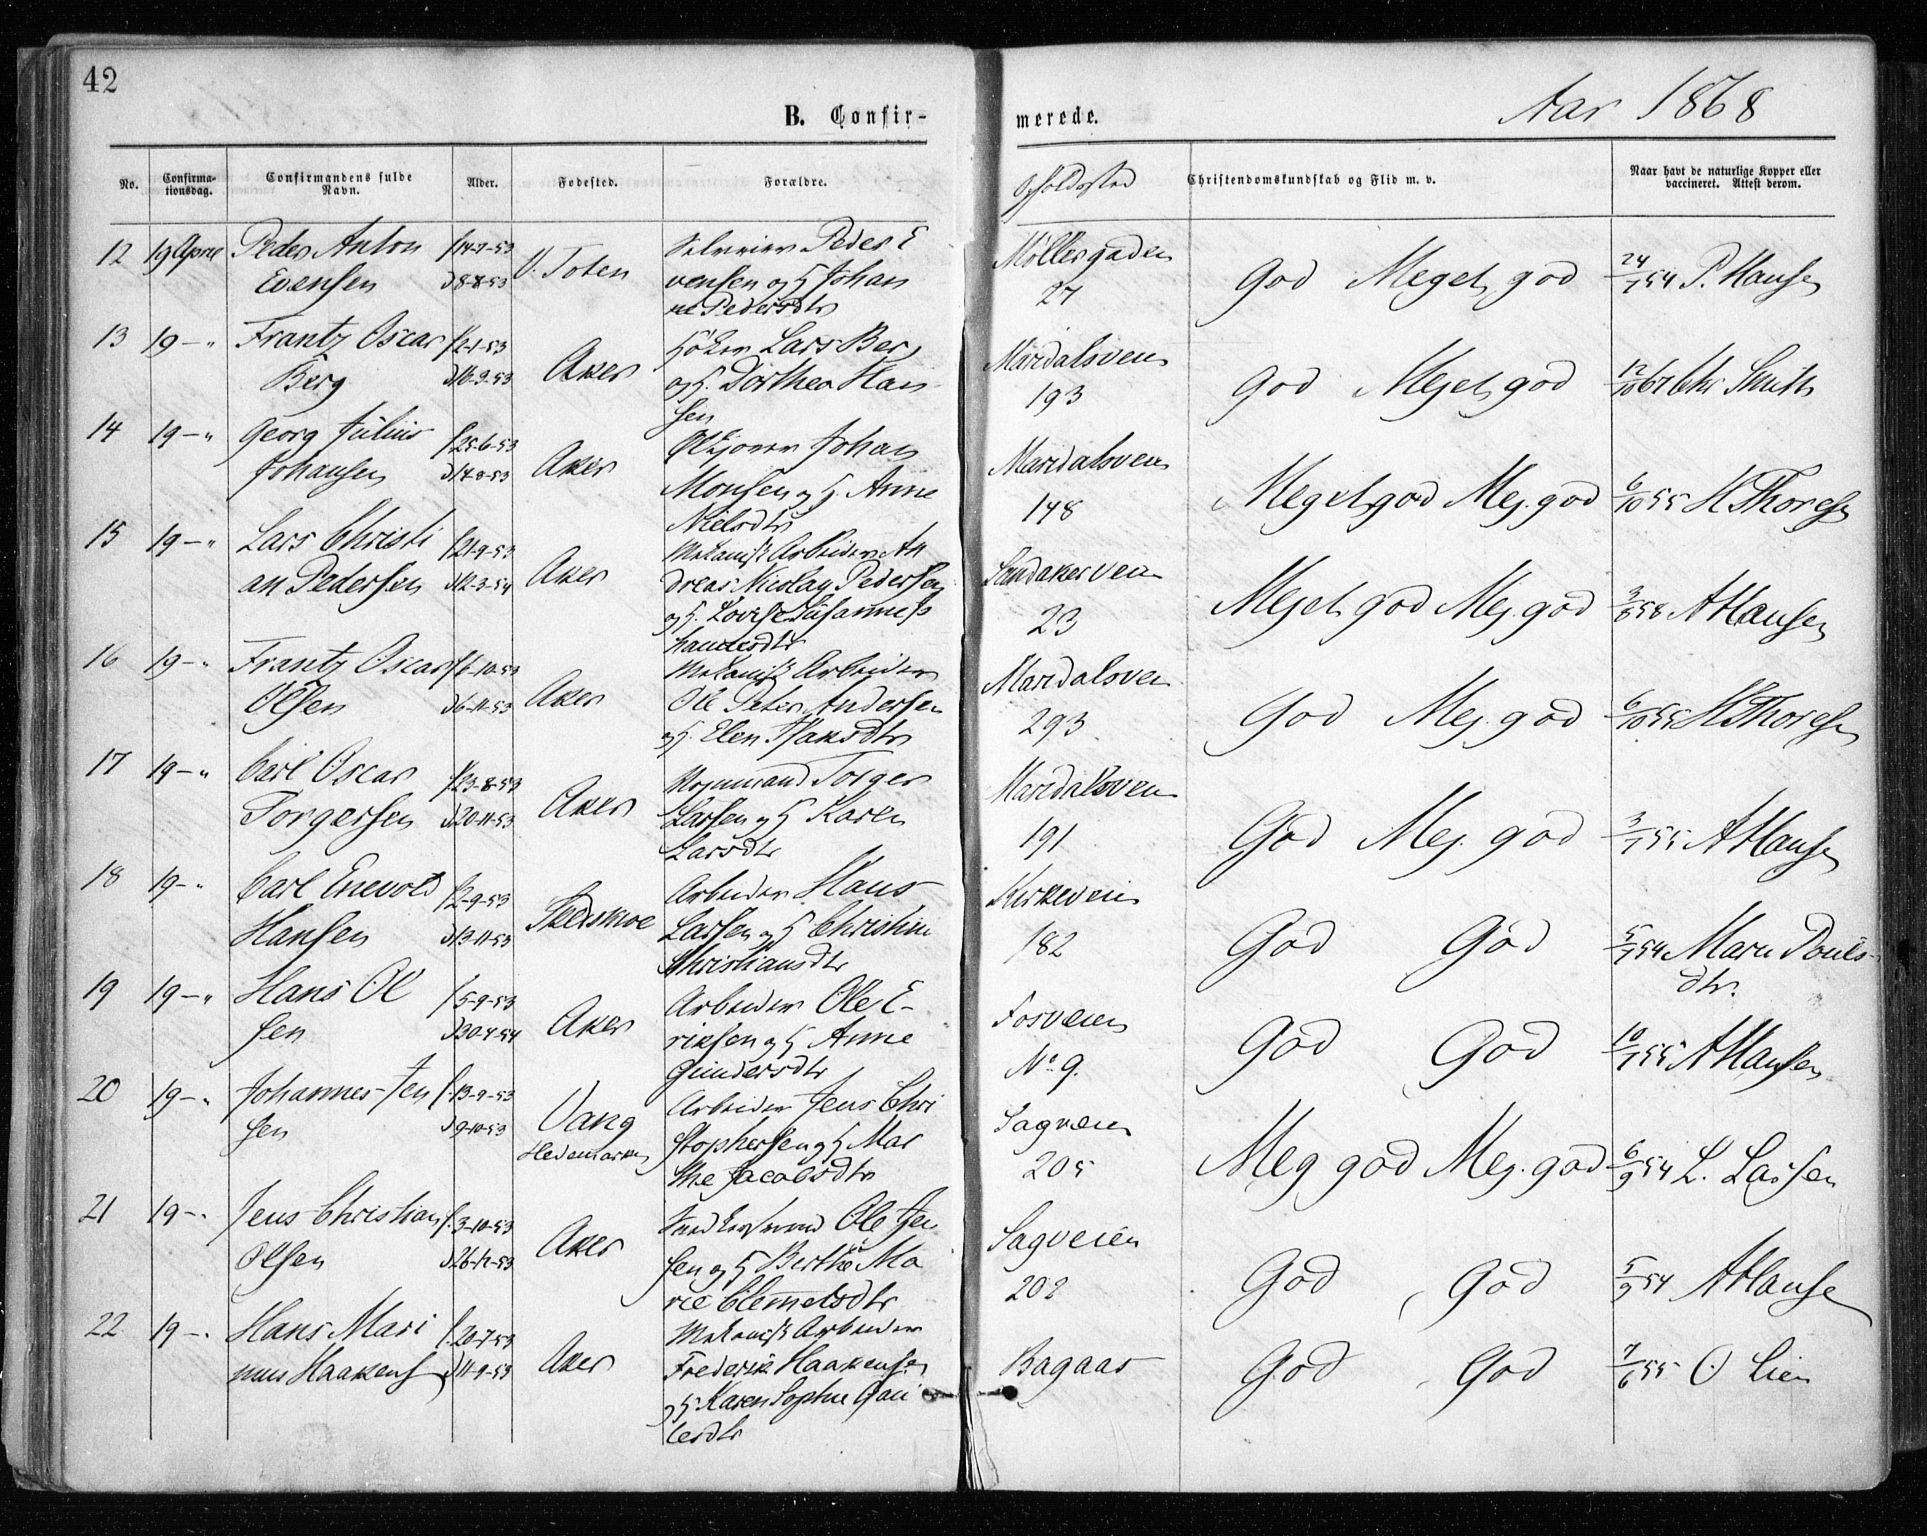 42
B. Confir-
merede.
Aar 1868
No.
Confirma-
tionsdag.
Confirmandens fulde
Navn.
Alder.
Fødested.
Forældre.
Opholdssted
Christendomskundskab og Flid m. v.
Naar havt de naturlige Kopper eller
vaccineret. Attest derom.
12 19 April Peder Anton f14-7-53 V. Toten Selveier Peder E Møllergaden God Meget god 24/7 54 P. Hansen
Evensen d8-8-53 vensen og H Johan 27
ne Pedersdtr
13 19 - " Frantz Oscar f2-1-53 Aker Høker Lars Berg Maridalsveien God Meget god 12/10 67 Chr Smith
Berg d16-3-53 og H. Dorthea Han 193
sen
14 19 - " Georg Julius f25-6-53 Aker Johan Maridalsveien Meget god Meg. god 6/10 55 H Thoresen
Johansen d14-8-53 Monsen og H. Anne 148
Nielsdtr
15 19 - " Lars Christi f21-9-53 Aker Mekanisk Arbeider An Sandakerveien Meget god Meg. god 3/8 58 A Hansen
an Pedersen d12-3-54 dreas Nicolay Pedersen 23
og H. Lovise Susanne
16 19 - " Frantz Oscar f6-10-53 Aker Mekanisk Arbeider Maridalsvei God Meg. god 6/10 55 H Thoresen
Olsen d6-11-53 Ole Peter Andersen 293
og H. Elen Isaksdtr
17 19 - " Carl Oscar f23-8-53 Aker Torger Maridalsveien God Meg. god 3/7 55 A Hansen
Torgersen d20-11-53 Larsen og H Karen 191
Larsdtr
18 19 - " Carl Enevold f2-9-53 Skedsmoe Arbeider Hans Kirkeveien God God 5/7 54 Mari Pouls-
Hansen d13-11-53 Larsen og H Christine 182 dtr.
Christiansdtr
19 19 - " Hans Ol f5-9-53 Aker Arbeider Ole E- Fosveien God God 10/7 55 A Hansen
sen d30-4-54 riksen og H Anne No 9.
Gundersdtr
20 19 - " Johannes Jen f.13-9-53 Vang Arbeider Jens Chri Sagveien Meg god Meg. god 6/9 54 L. Larsen
sen d9-10-53 Hedemarken stophersen og H Mar 205
the Jacobsdtr
21 19 - " Jens Christian f.3-10-53 Aker Ole Jen Sagveien God God 5/9 54 A Hansen
Olsen d26-12-53 sen og H Berthe Ma 202
rie Clemetsdtr
22 19 - " Hans Mari f.20-7-53 Aker Mekanisk Arbeider Bagaas God God 7/6 55 O Lien
nus Haakensen d11-9-53 Frederik Haakensen
og H Karen Sophie